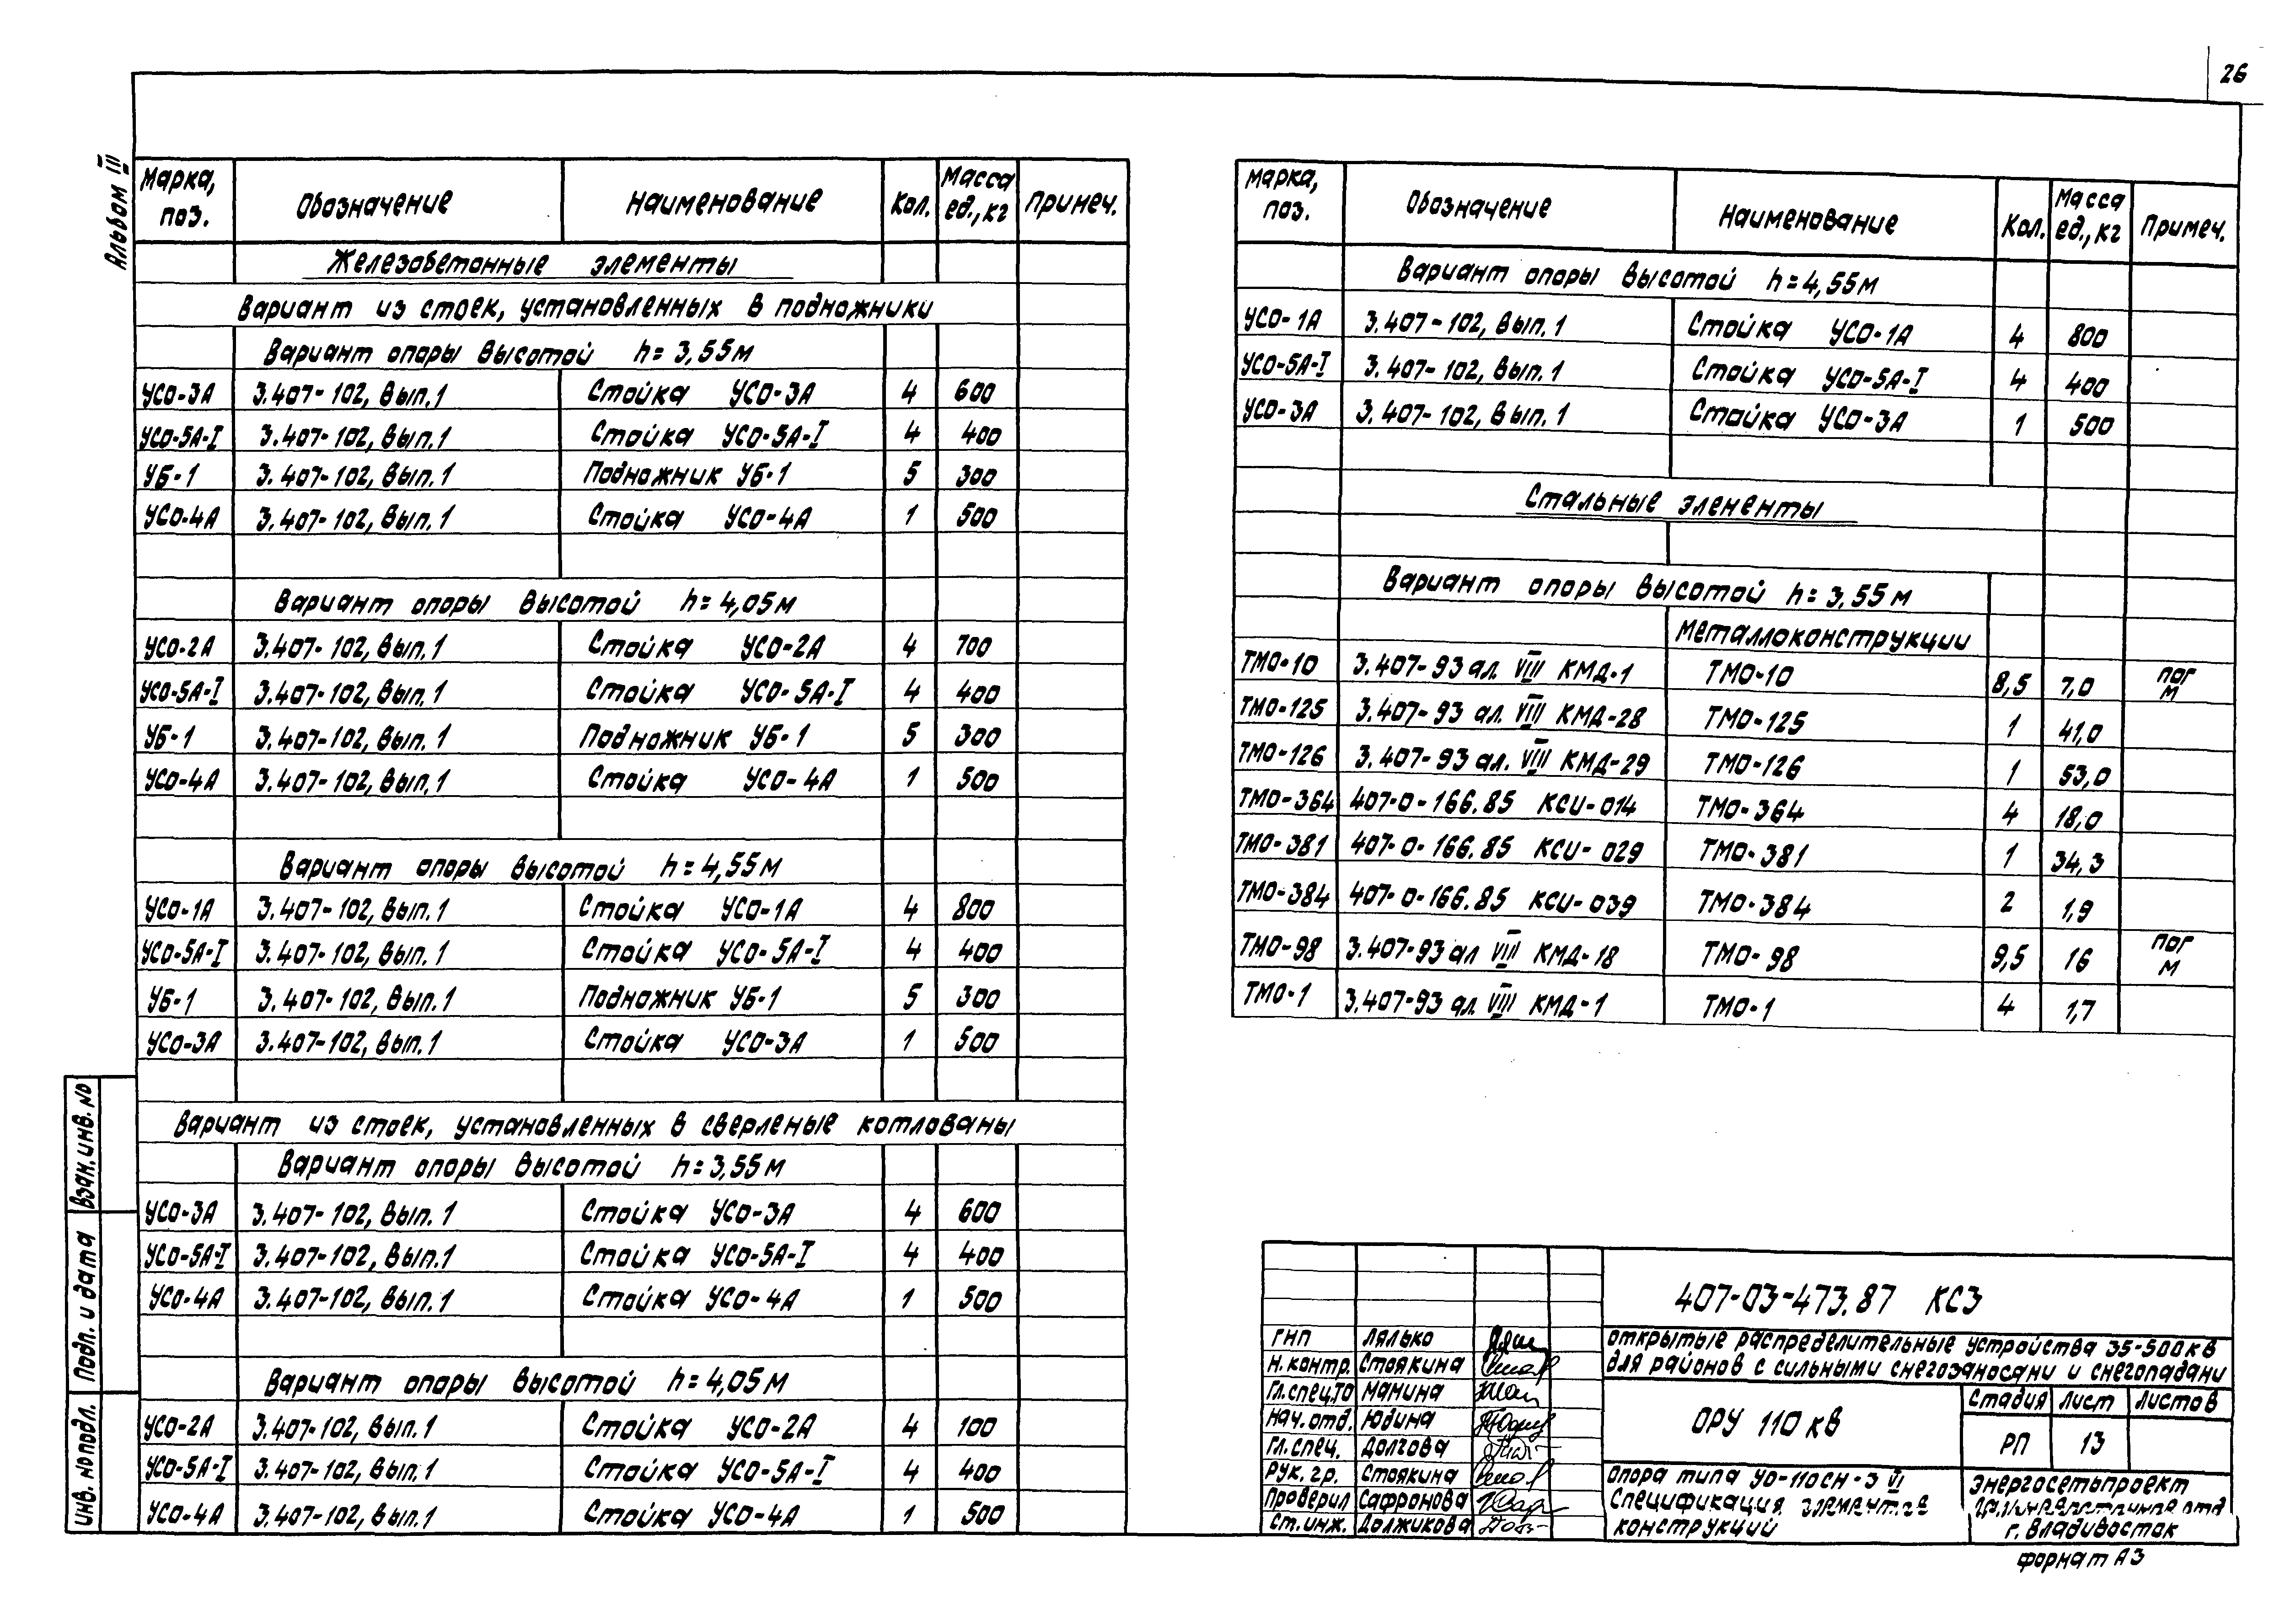 26
Альбом III
Марка, поз. Обозначение Наименование Кол. Масса ед., кг Примеч.
Железобетонные элементы
Вариант из стоек, установленных в подножники
Вариант опоры высотой h=3,55м
УСО-3А 3.407-102, вып.1 Стойка УСО-3А 4 600
УСО-5А-I 3.407-102, вып.1 Стойка УСО-5А-I 4 400
УБ-1 3.407-102, вып.1 Подножник УБ-1 5 300
УСО-4А 3.407-102, вып.1 Стойка УСО-4А 1 500
Вариант опоры высотой h=4,05м
УСО-2А 3.407-102, вып.1 Стойка УСО-2А 4 700
УСО-5А-I 3.407-102, вып.1 Стойка УСО-5А-I 4 400
УБ-1 3.407-102, вып.1 Подножник УБ-1 5 300
УСО-4А 3.407-102, вып.1 Стойка УСО-4А 1 500
Вариант опоры высотой h=4,55м
УСО-1А 3.407-102, вып.1 Стойка УСО-1А 4 800
УСО-5А-I 3.407-102, вып.1 Стойка УСО-5А-I 4 400
УБ-1 3.407-102, вып.1 Подножник УБ-1 5 300
УСО-3А 3.407-102, вып.1 Стойка УСО-3А 1 500
Вариант из стоек, установленных в сверленые котлованы
Вариант опоры высотой h=3,55м
УСО-3А 3.407-102, вып.1 Стойка УСО-3А 4 600
УСО-5А-I 3.407-102, вып.1 Стойка УСО-5А-I 4 400
УСО-4А 3.407-102, вып.1 Стойка УСО-4А 1 500
Вариант опоры высотой h=4,05м
УСО-2А 3.407-102, вып.1 Стойка УСО-2А 4 100
УСО-5А-I 3.407-102, вып.1 Стойка УСО-5А-I 4 400
УСО-4А 3.407-102, вып.1 Стойка УСО-4А 1 500
Взам. инв. №
Подп. и дата
Инв. № подл.
Марка, поз. Обозначение Наименование Кол. Масса ед., кг Примеч.
Вариант опоры высотой h=4,55м
УСО-1А 3.407-102, вып.1 Стойка УСО-1А 4 800
УСО-5А-I 3.407-102, вып.1 Стойка УСО-5А-I 4 400
УСО-3А 3.407-102, вып.1 Стойка УСО-3А 1 500
Стальные элементы
Вариант опоры высотой h=3,55м
Металлоконструкции
ТМО-10 3.407-93 ал. VIII КМД-1 ТМО-10 8,5 7,0 пог м
ТМО-125 3.407-93 ал. VIII КМД-28 ТМО-125 1 41,0
ТМО-126 3.407-93 ал. VIII КМД-29 ТМО-126 1 53,0
ТМО-364 407-0-166.85 КСИ-014 ТМО-364 4 18,0
ТМО-381 407-0-166.85 КСИ-029 ТМО-381 1 34,3
ТМО-384 407-0-166.85 КСИ-039 ТМО-384 2 1,9
ТМО-98 3.407-93 ал VIII КМД-18 ТМО-98 9,5 16 пог м
ТМО-1 3.407-93 ал. VIII КМД-1 ТМО-1 4 1,7
407-03-473.87 КС3
ГИП Лялько
Н. контр. Стоякина
Гл.спец.ТО Манина
Нач. отд. Юдина
Гл. спец. Долгова
Рук. гр. Стоякина
Проверил Сафронова
Ст. инж. Должикова
Открытые распределительные устройства 35-500кВ
для районов с сильными снегозаносами и снегопадами
ОРУ 110 кВ
Стадия Лист Листов
РП 13
Опора типа УО-110СН-3 VI
Спецификация элементов
конструкций
Энергосетьпроект
г. Владивосток
Формат А3